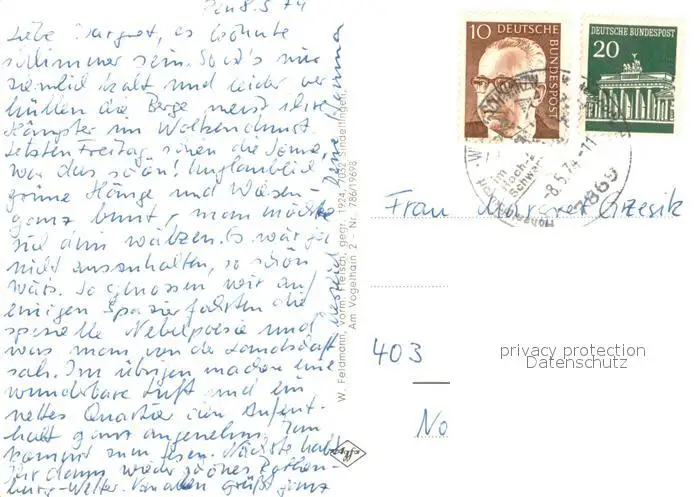 Den 8.5.74
Liebe Margret, es könnte
schlimmer sein. So ist's nur
ziemlich kalt und leider ver
hüllen die Berge meist ihre
Häupter im Wolkendunst.
Letzten Freitag schien die Sonne
war das schön! Unglaublich
grüne Hänge und Wiesen
ganz bunt, man möchte
sich drin wälzen. Es wär ja
nicht auszuhalten, so schön
wärs. So genossen wir auf
einigen Spazierfahrten die
spezielle Nebelpoesie und
was man von der Landschaft
sah. Im übrigen machen eine
wunderbare Luft und ein
nettes Quartier den Aufent-
halt ganz angenehm. Zum
komme zum lesen. Nächste habt
Ihr dann wieder schönes
burg-Wetter. Von allen grüßt ganz
W. Feldmann, vorm. Fleisch, gegr. 1924, 7032 Sindelfingen,
Am Vogelhain 2 - Nr. 786/19698
10
DEUTSCHE
BUNDESPOST
DEUTSCHE BUNDESPOST
20
im
Hoch-
Schwarz
-8.5.74-11
7869
Frau Grzesik
403
No
privacy protection
Datenschutz